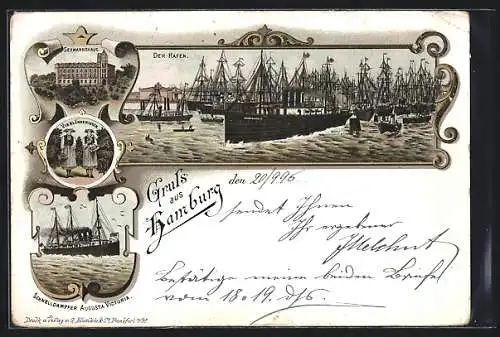 SEEMANNSHAUS.
DER HAFEN.
VIERLÄNDERINNEN
Gruss
aus
Hamburg
den 20/9 96
sendet Ihnen
Ihr ergebener
Bestätige meine beiden Briefe
vom 18 & 19. ds.
SCHNELLDAMPFER AUGUSTA VICTORIA.
Druck u. Verlag v.